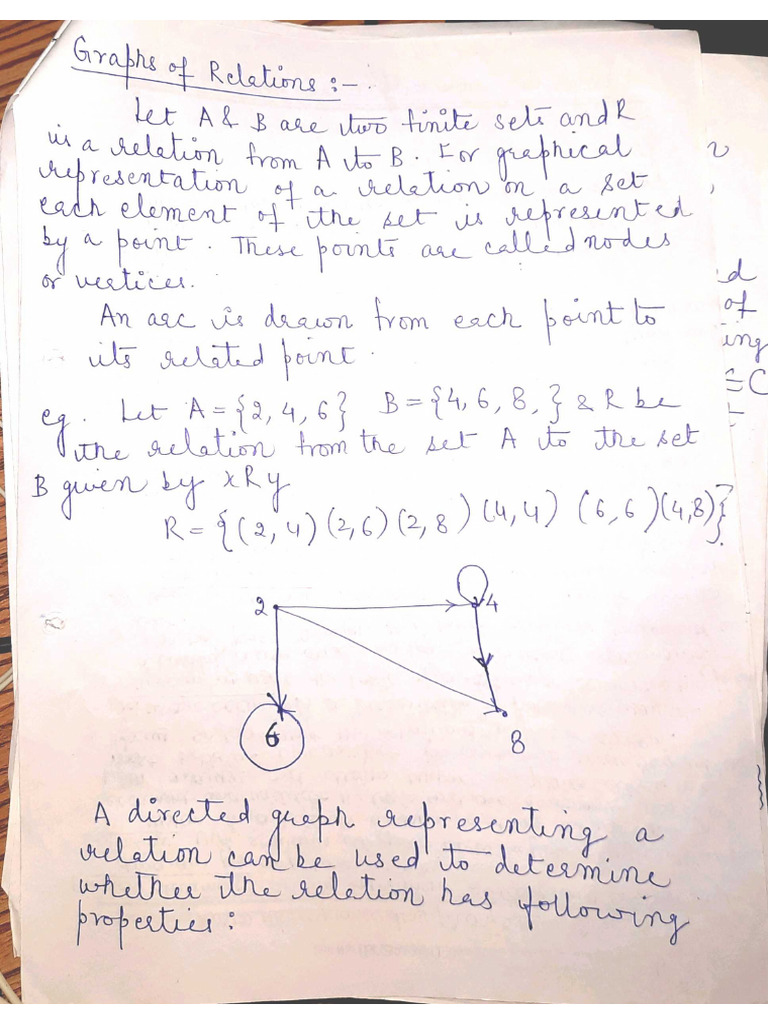 Graphs of Relations :-
Let A & B are two finite sets and R
is a relation from A to B. For graphical
representation of a relation on a set
each element of the set is represented
by a point. These points are called nodes
or vertices.
An arc is drawn from each point to
its related point.
eg. Let A = {2, 4, 6} B = {4, 6, 8, } & R be
the relation from the set A to the set
B given by xRy
R = {(2, 4) (2, 6) (2, 8) (4, 4) (6, 6) (4, 8)}.
2 4
6 8
A directed graph representing a
relation can be used to determine
whether the relation has following
properties:
d
of
ing